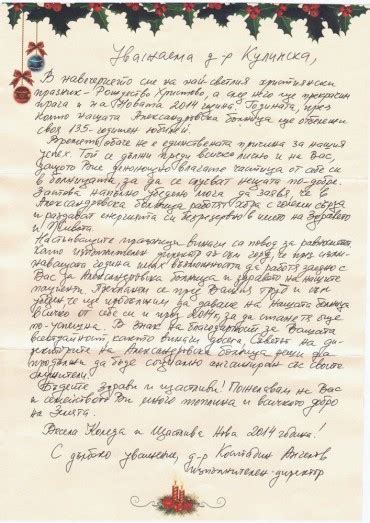 Уважаема д-р Кулинска,
В навечерието сме на най-светлия християнски
празник – Рождество Христово, а след него ще прекрачим
прага и на Новата 2014 година. Годината, през
която нашата Александровска болница ще отбележи
своя 135-годишен юбилей.
не е единствената причина за нашия
успех. Той се дължи преди всичко лично и на Вас,
защото Вие денонощно влагате частица от себе си
в болницата, за да се случват нещата по-добре.
Затова напълно убедено мога да заявя, че в
Александровска болница работят хора с големи сърца
и раздават енергията си безрезервно в името на Здравето
и Живота.
Настъпващите празници винаги са повод за равносметка.
като изпълнителен директор аз съм горд, че през измина-
ващата година имах възможността да работя заедно с
Вас за Александровска болница и здравето на нашите
пациенти. Прекланям се пред Вашия труд и съм
убеден, че ще продължим да даваме на нашата болница
всичко от себе си и през 2014г., за да стане тя още
по-успешна. В знак на благодарност за Вашата
всеотдайност, както винаги досега, Съветът на ди-
ректорите на Александровска болница реши да
продължи да бъде социално ангажиран със своите
служители.
Бъдете здрави и щастливи! Пожелавам на Вас
и семейството Ви много топлина и всичкото добро
на Земята.
Весела Коледа и Щастлива Нова 2014 година!
С дълбоко уважение, д-р Костадин Ангелов
изпълнителен директор